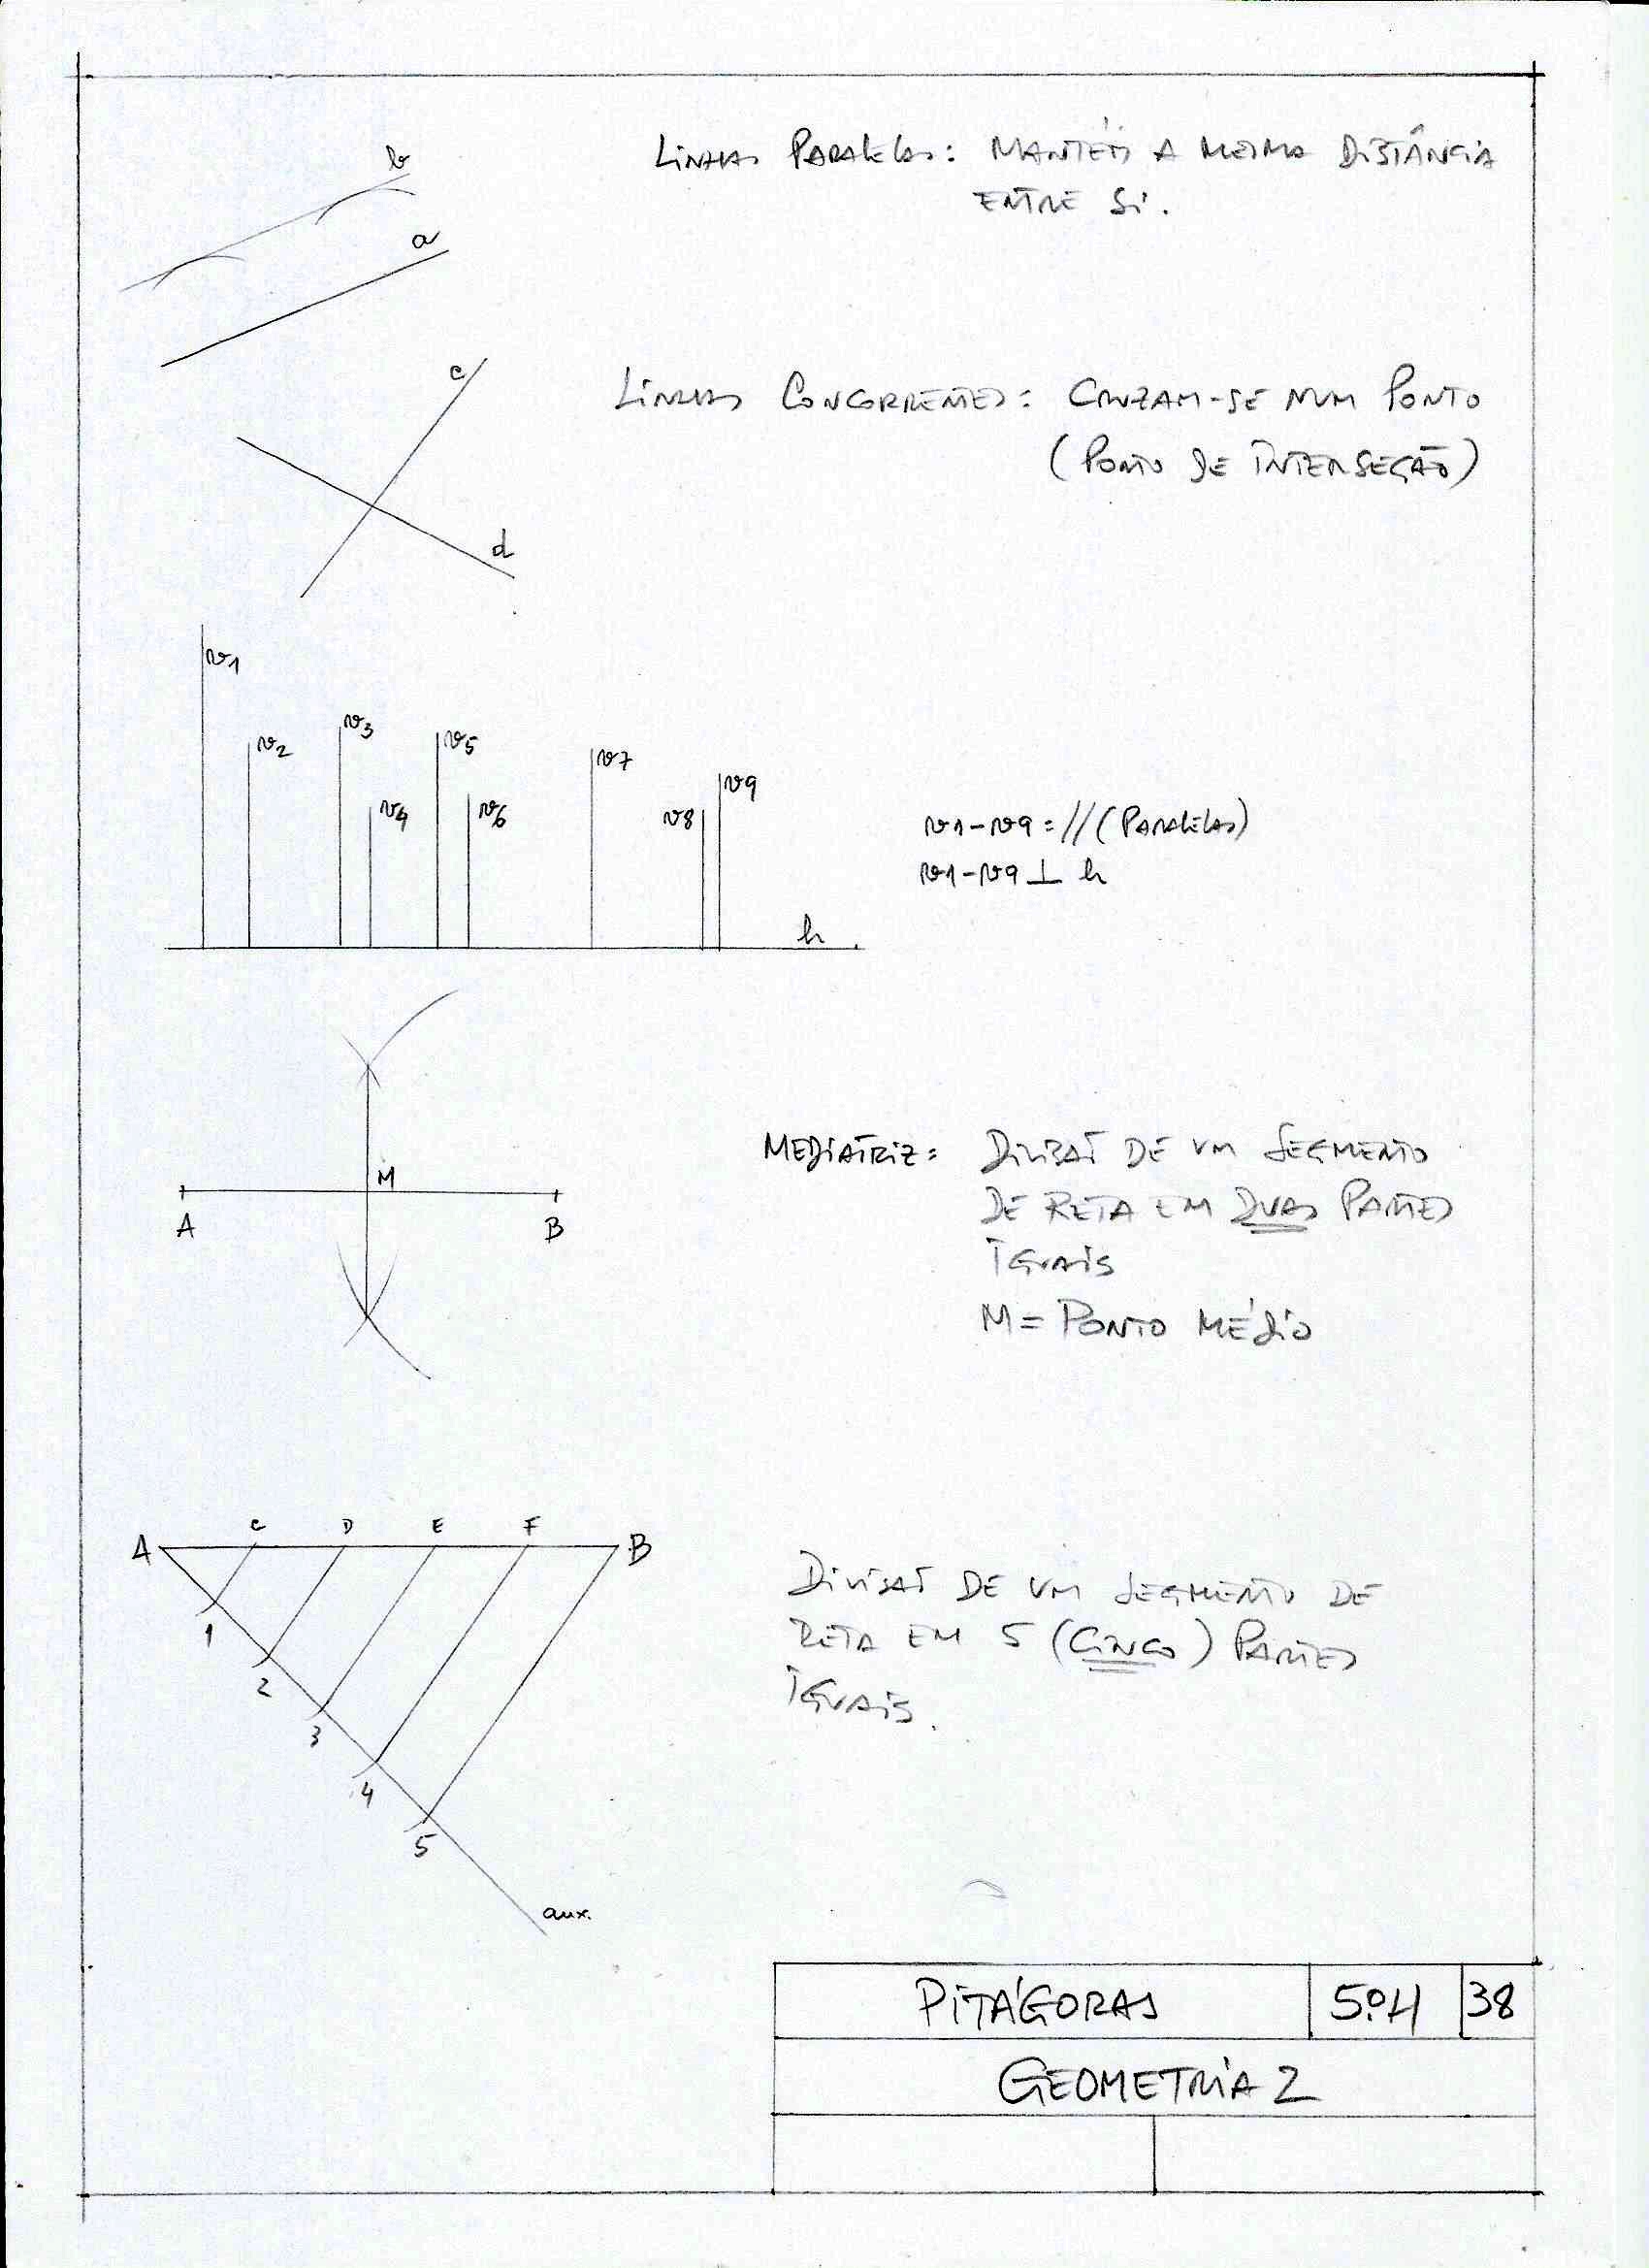 b
LINHAS PARALELAS: MANTÉM A MESMA DISTÂNCIA
ENTRE SI.
a
c
LINHAS CONCORRENTES: CRUZAM-SE NUM PONTO
(PONTO DE INTERSEÇÃO)
d
v1
v2
v3
v4
v5
v6
v7
v8
v9
v1-v9 = // (PARALELAS)
v1-v9 ⊥ h
h
MEDIATRIZ: DIVISÃO DE UM SEGMENTO
DE RETA EM DUAS PARTES
IGUAIS
M = PONTO MÉDIO
M
A
B
A
C
D
E
F
B
DIVISÃO DE UM SEGMENTO DE
RETA EM 5 (CINCO) PARTES
IGUAIS.
1
2
3
4
5
aux.
PITÁGORAS 5ºH 38
GEOMETRIA 2